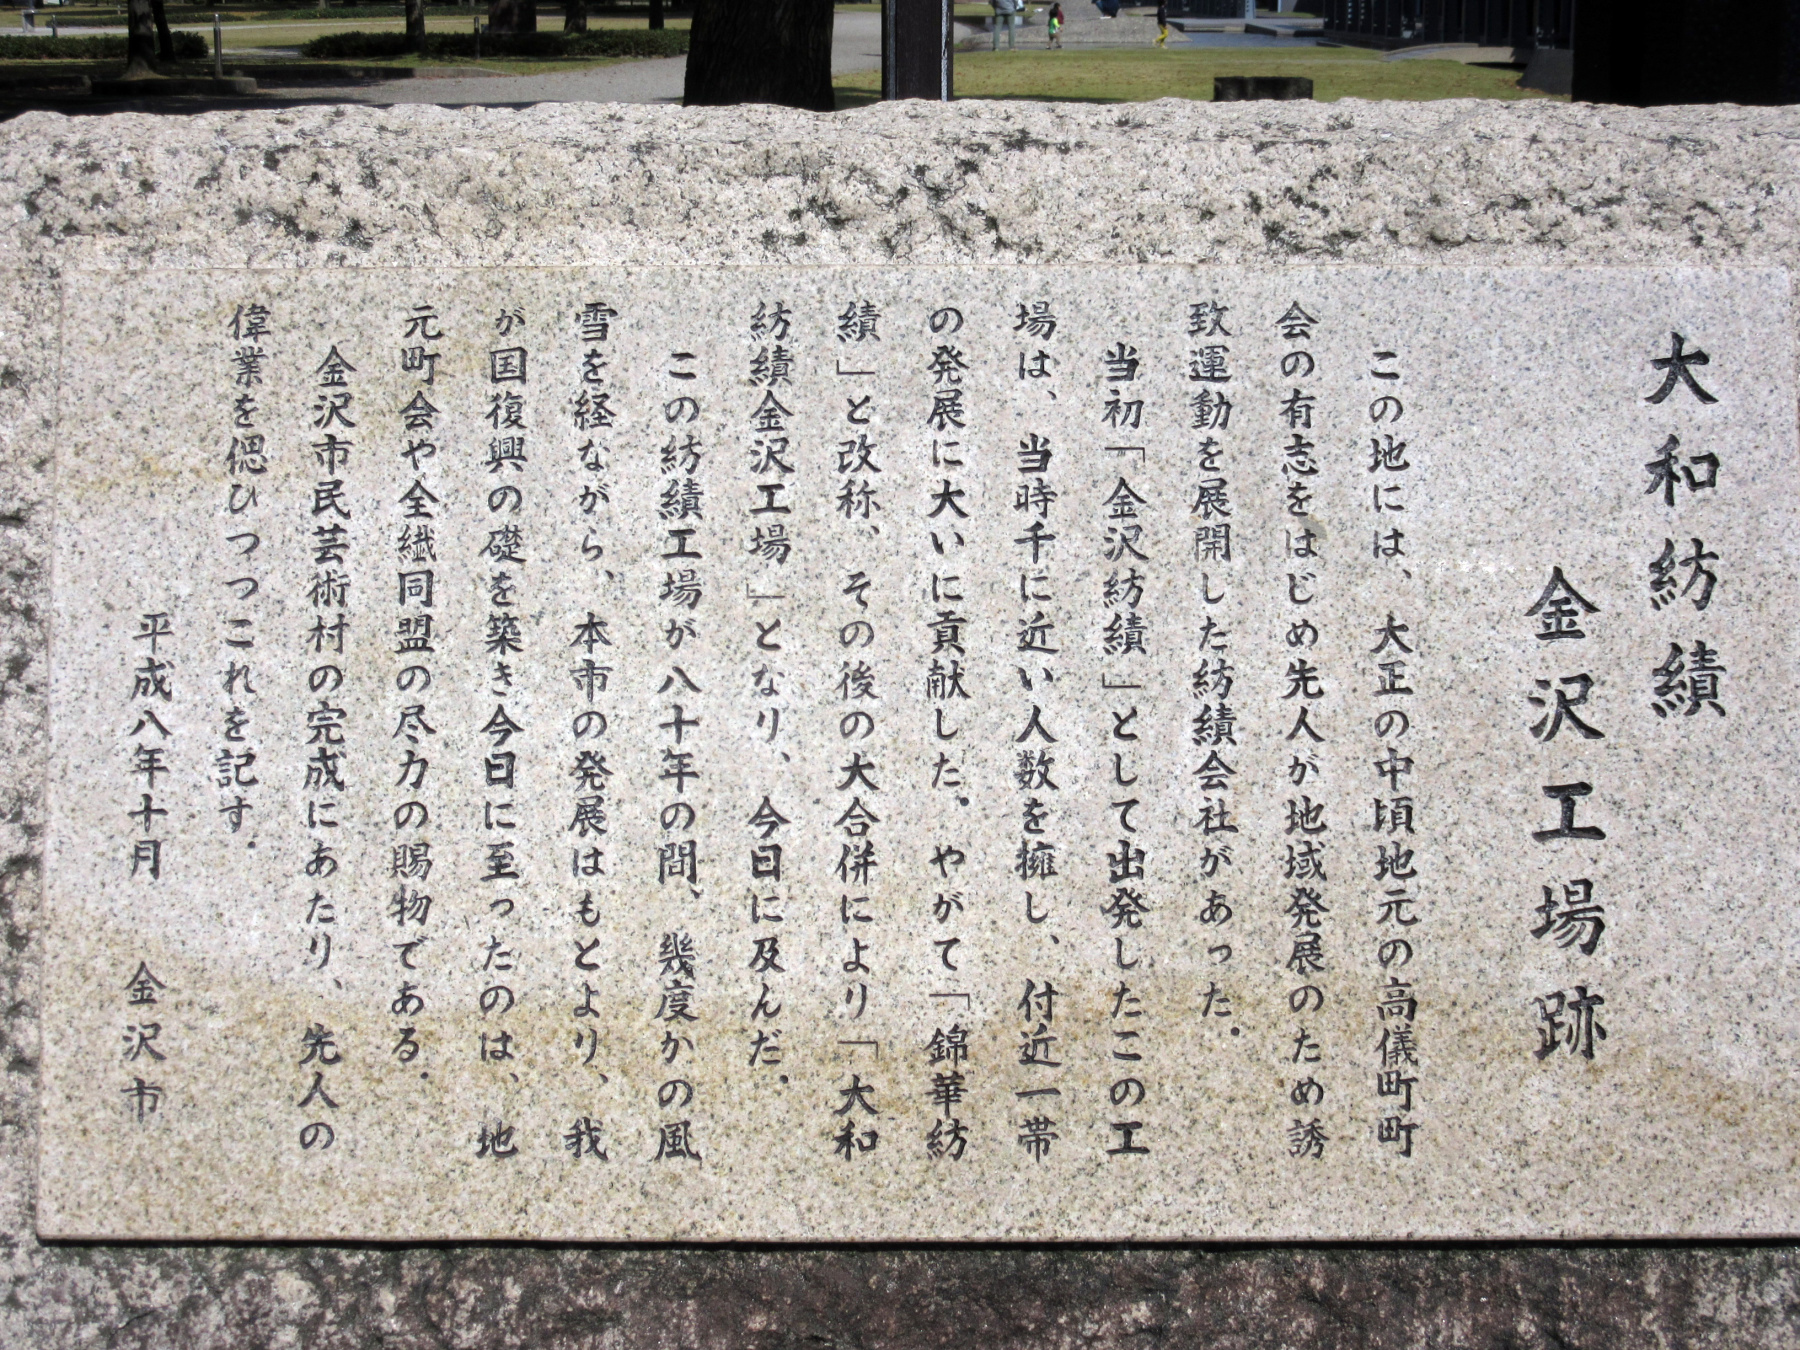 大和紡績
金沢工場跡
この地には、大正の中頃地元の高儀町町
会の有志をはじめ先人が地域発展のため誘
致運動を展開した紡績会社があった。
当初「金沢紡績」として出発したこの工
場は、当時千に近い人数を擁し、付近一帯
の発展に大いに貢献した。やがて「錦華紡
績」と改称、その後の大合併により「大和
紡績金沢工場」となり、今日に及んだ。
この紡績工場が八十年の間、幾度かの風
雪を経ながら、本市の発展はもとより、我
が国復興の礎を築き今日に至ったのは、地
元町会や全繊同盟の尽力の賜物である。
金沢市民芸術村の完成にあたり、先人の
偉業を偲ひつつこれを記す。
平成八年十月 金沢市